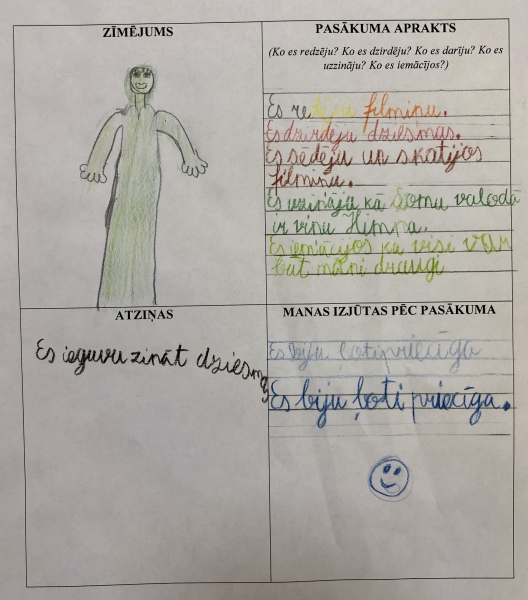 ZĪMĒJUMS
PASĀKUMA APRAKTS
(Ko es redzēju? Ko es dzirdēju? Ko es darīju? Ko es
uzzināju? Ko es iemācījos?)
Es redzēju filmiņu.
Es dzirdēju dziesmas.
Es sēdēju un skatijos
filmiņu.
Es uzināju kā Somu valodā
ir viņu Himna.
Es iemācijos ka visi var
būt mani draugi
ATZIŅAS
Es ieguvu zināt dziesmas
MANAS IZJŪTAS PĒC PASĀKUMA
Es biju ļoti priecīga
Es biju ļoti priecīga.